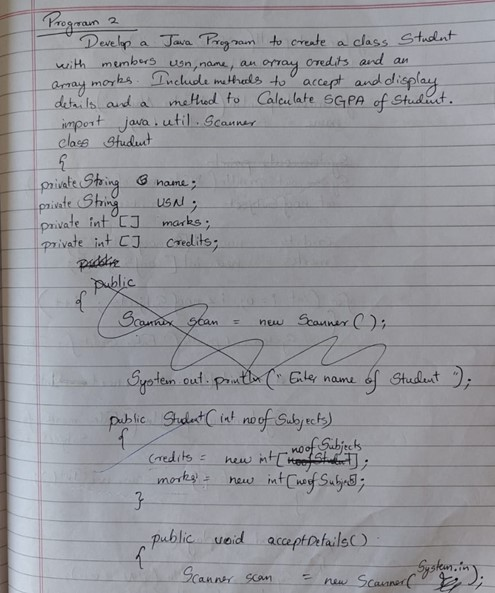 Program 2
Develop a Java Program to create a class Student
with members usn, name, an array credits and an
array marks. Include methods to accept and display
details and a method to Calculate SGPA of Student.
import java.util.Scanner
class Student
{
private String name;
private String USN;
private int [] marks;
private int [] credits;
public
public
{
Scanner scan = new Scanner();
System out.println("Enter name of Student");
public Student(int noofSubjects)
{
noofSubjects
credits = new int[noofStudent];
marks = new int[noofSubjects];
}
public void acceptDetails()
{
System.in
Scanner scan = new Scanner( );